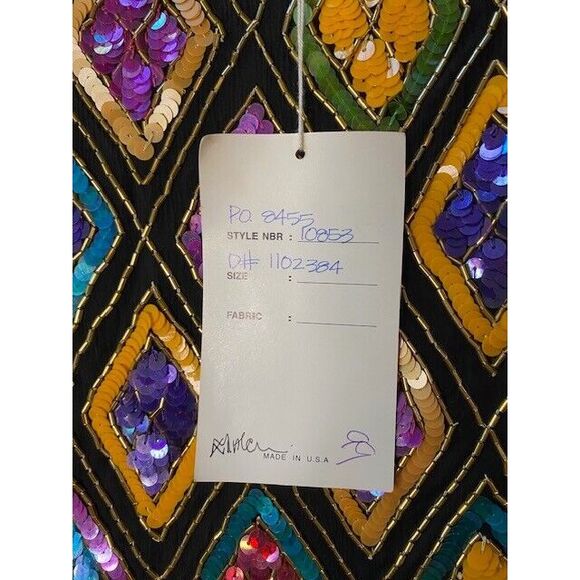 P.O. 8455
STYLE NBR : 10853
D# 1102384
SIZE : 
FABRIC : 
MADE IN U.S.A